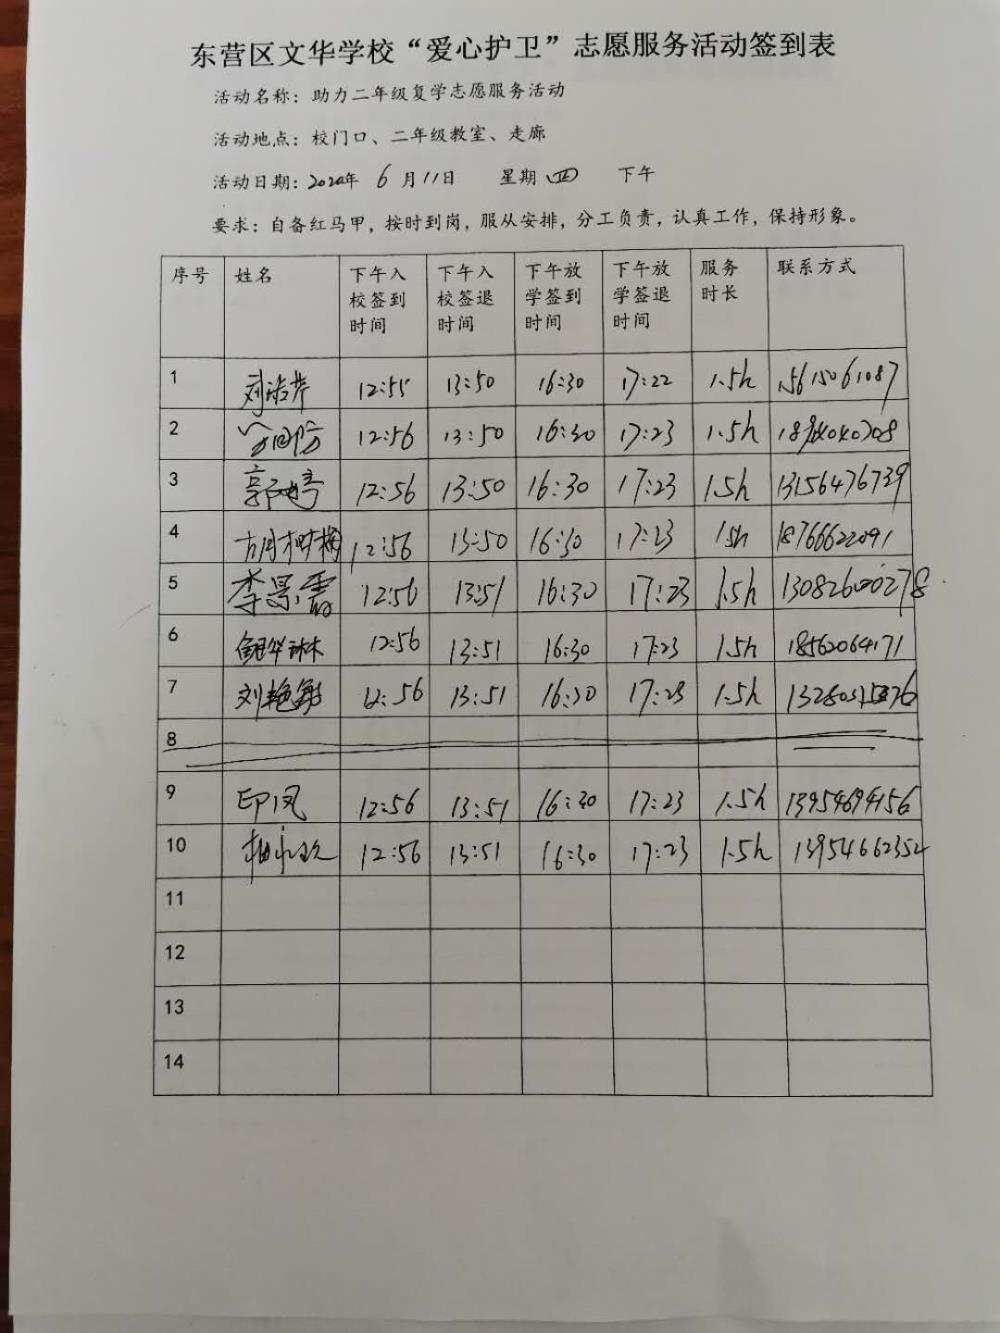 东营区文华学校“爱心护卫”志愿服务活动签到表
活动名称：助力二年级复学志愿服务活动
活动地点：校门口、二年级教室、走廊
活动日期：2020年 6月11日 星期四 下午
要求：自备红马甲，按时到岗，服从安排，分工负责，认真工作，保持形象。
序号 姓名 下午入校签到时间 下午入校签退时间 下午放学签到时间 下午放学签退时间 服务时长 联系方式
1 12:55 13:50 16:30 17:22 1.5h 15615061087
2 12:56 13:50 16:30 17:23 1.5h
3 郭婷 12:56 13:50 16:30 17:23 1.5h 13156476739
4 12:56 13:50 16:30 17:23 1.5h 18766622091
5 李景霞 12:56 13:51 16:30 17:23 1.5h 13082600278
6 12:56 13:51 16:30 17:23 1.5h 18562064171
7 刘艳敏 12:56 13:51 16:30 17:23 1.5h
8
9 印凤 12:56 13:51 16:30 17:23 1.5h 13954694156
10 12:56 13:51 16:30 17:23 1.5h 13954662352
11
12
13
14